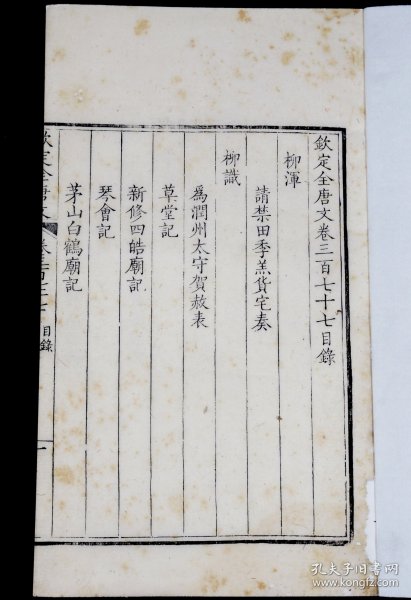 欽定全唐文卷三百七十七目錄
柳渾
請禁田季羔貨宅奏
柳識
爲潤州太守賀赦表
草堂記
新修四皓廟記
琴會記
茅山白鶴廟記
欽定全唐文 卷三百七十七 目錄 一
孔夫子旧书网
www.kongfz.com